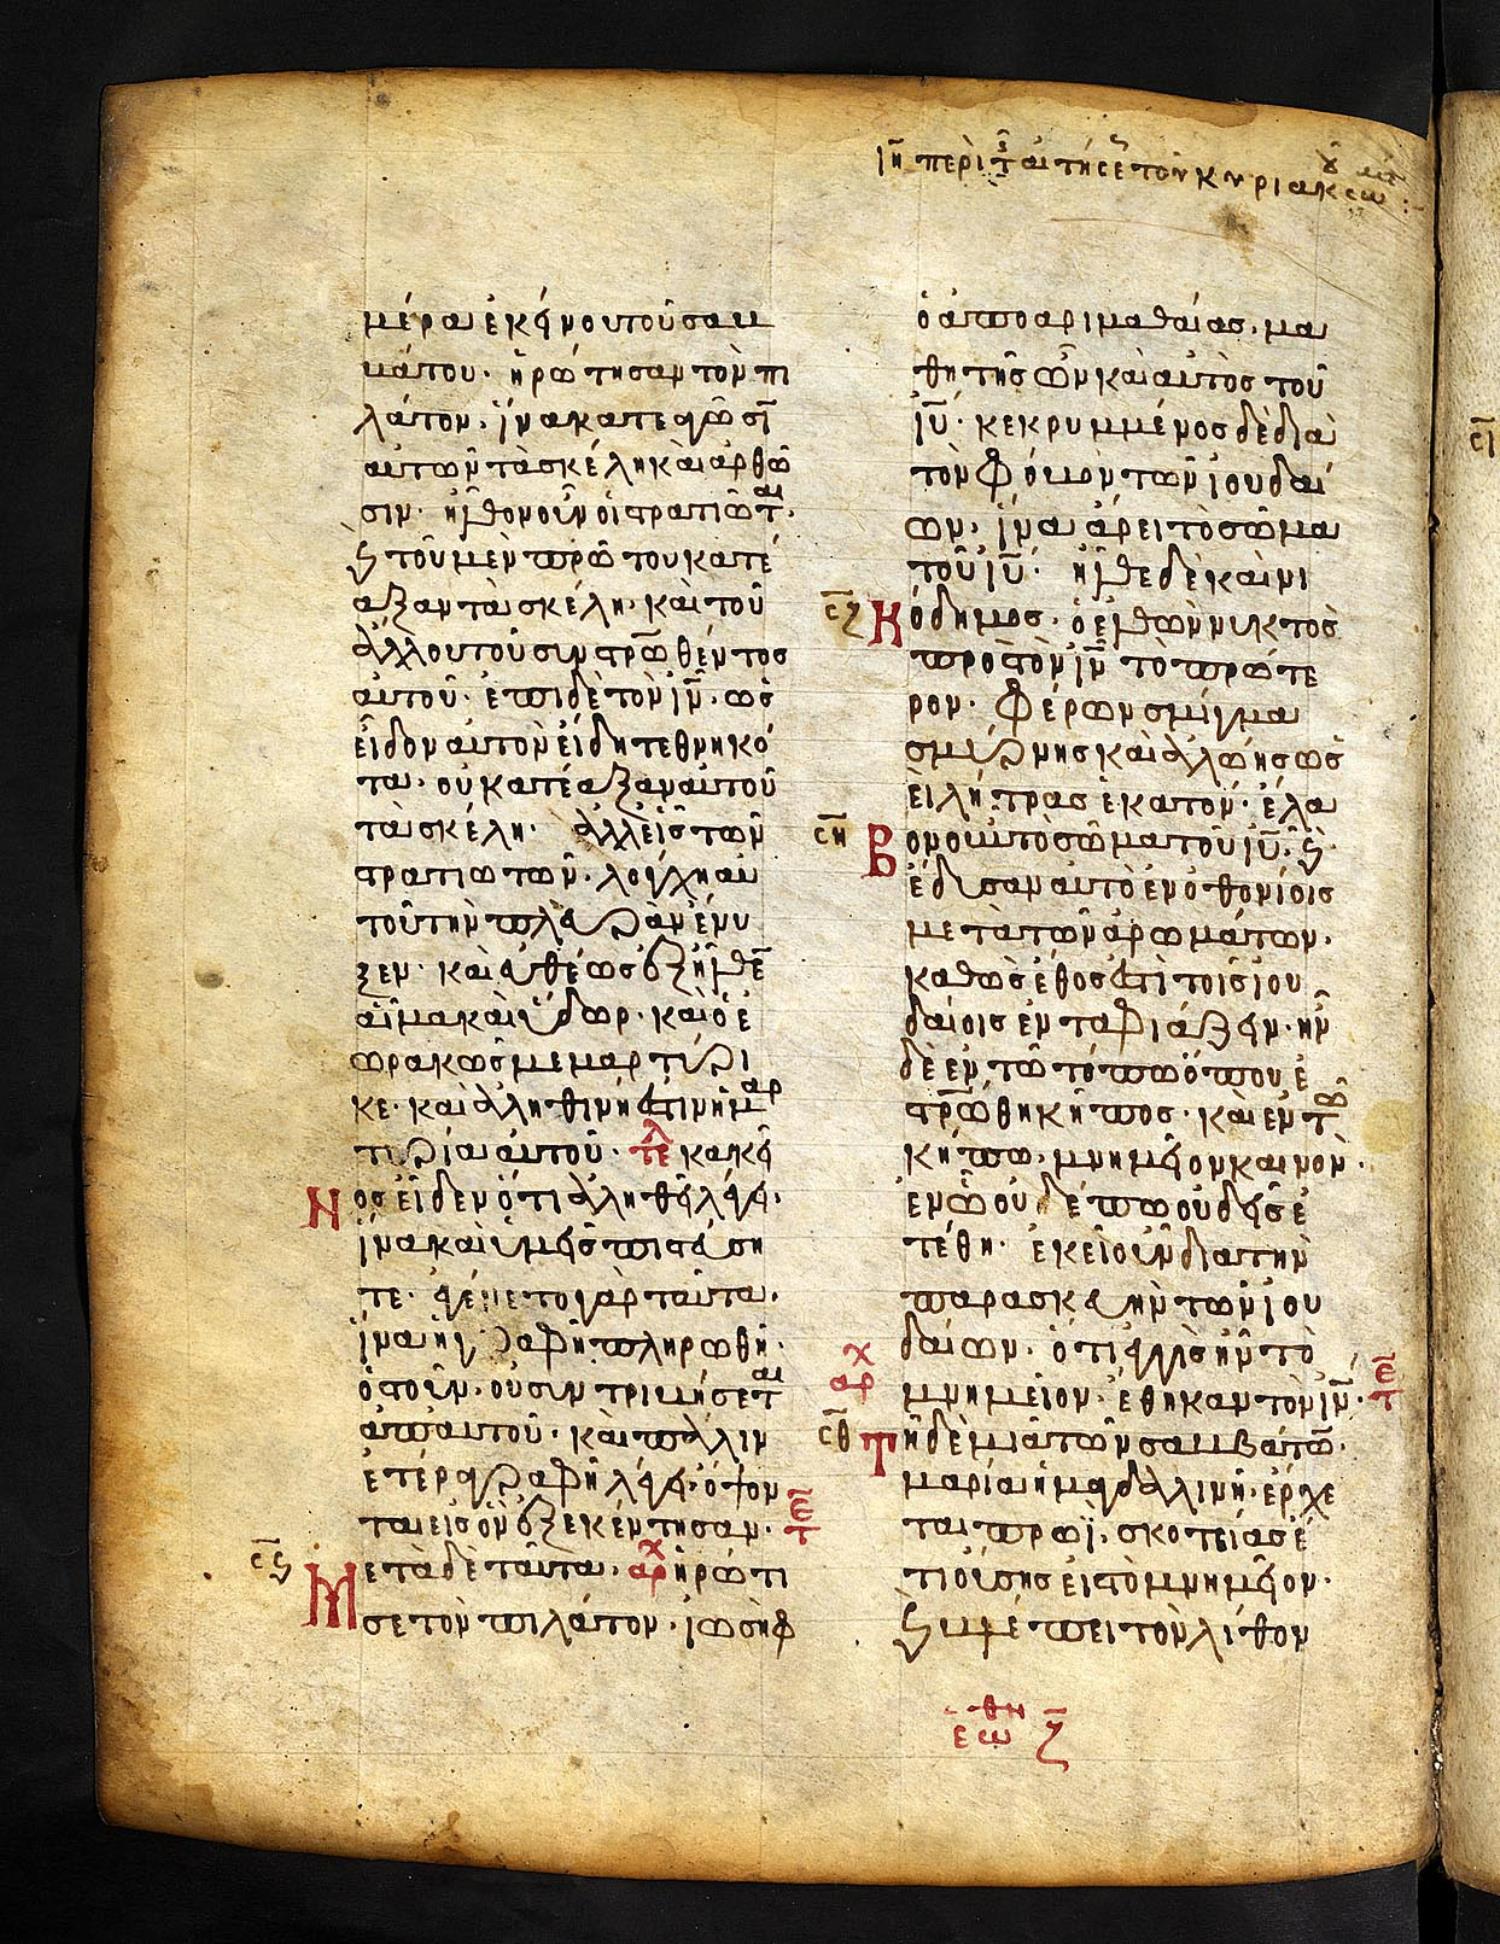 ιη περὶ τ αιτήσε τοῦ κυριακ σω
μέρα ἐκείνου τοῦ σαβ
βάτου· ἠρώτησαν τὸν πι
λάτον· ἵνα κατεαγῶσῑ
αυτων τὰ σκέλη και αρθῶ
σιν· ἦλθον οὖν οἱ στρατιῶτ(αι)·
ϛ τοῦ μὲν πρώτου κατέ
αξαν τὰ σκέλη· καὶ τοῦ
ἄλλου τοῦ συν στρ̅ωθέντος
αυτοῦ· ἐπι δὲ τὸν ι̅ν̅· ως
εἶδον αυτὸν εἴδη τεθνηκό
τα· ου κατέαξαν αυτοῦ
τὰ σκέλη· ἀλλ εἷς τῶν
στρατιωτῶν· λόγχη αυ
τοῦ τὴν πλευρὰν ἔνυ
ξεν· και ευθέως ἐξῆλθε̅
αἷμα καὶ ὕδωρ· καὶ ὁ ἑ
ωρακὼς μεμαρτύρι
κε· καὶ ἀληθινή ἐστιν ἡ μαρ
τυρία αυτοῦ· τελ κακεῖ
Νος εἶδεν ὅτι ἀληθῆ λέγει·
ἵνα και ὑμεῖς πιστεύση
τε· ἐγένετο γὰρ ταῦτα·
ἵνα ἡ γραφὴ πληρωθῆ·
ὀστοῦν· ου συντριβήσετ(αι)
απ αυτοῦ· καὶ πάλιν
ἑτέρα γραφὴ λέγει· ὄψον
ται εις ὃν ἐξεκέντησαν· τε̅
σ̅ϛ Μετὰ δὲ ταῦτα· αρχ ἠρώτι
σε τὸν πιλάτον· ἰωσὴφ
ὁ απο αριμαθαίας· μα
θητὴς ὢν καὶ αὐτὸς τοῦ
ι̅υ̅· κεκρυμμένος δὲ διὰ
τὸν φόβον τῶν ἰουδαί
ων· ἵνα ἄρει τὸ σῶμα
τοῦ ι̅υ̅· ἦλθε δὲ και νι
σ̅ζ Κόδημος· ὁ ελθὼν νυκτὸς
πρὸς τὸν ι̅ν̅ τὸ πρώτε
ρον· φέρων σμίγμα
σμύρνης και ἀλώης ὡς
ει λήτρας ἑκατον· ἔλα
σ̅η Βον οὖν τὸ σῶμα τοῦ ι̅υ̅· ϛ
ἔδυσαν αυτὸ ἐν ὀθονίοις
μετὰ τῶν ἀρωμάτων·
καθὼς ἔθος ἐστὶ τοῖς ἰου
δαίοις ἐνταφιάζειν· ἦν
δὲ εν τῶ τόπω ὅπου ἐ
στρ̅ώθη κῆπος· καὶ εν τῶ
κήπω· μνημεῖον καινον·
εν ῶ ουδέπω ουδεὶς ἐ
τέθη· ἐκεῖ οὖν δια τὴν
παρασκευὴν τῶν ἰου
δαίων· ὅτι ἐγγὺς ἦν τὸ
αρχ μνημεῖον· ἔθηκαν τὸν ι̅ν̅· τε̅
σ̅θ Τῆ δὲ μιᾶ τῶν σαββάτω̅·
μαρία ἡ μαγδαλινή· ἔρχε
ται πρωῒ· σκοτείας ἔ
τι οὔσης εἰς τὸ μνημεῖον·
ϛ βλέπει τὸν λίθον
εωθη ζ̅
σ̅ι